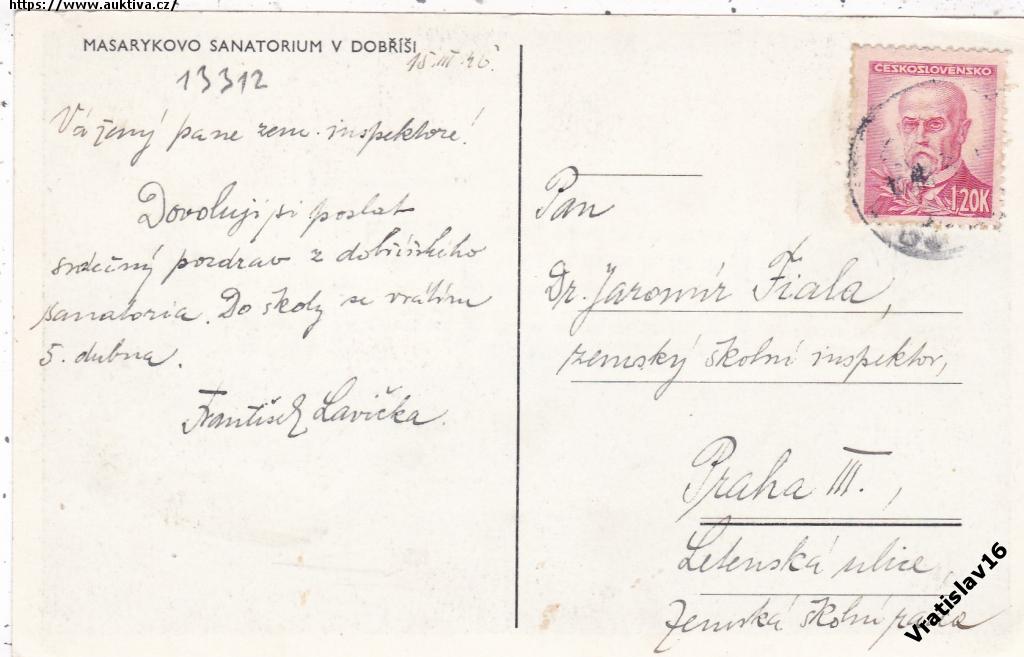 https://www.auktiva.cz/
MASARYKOVO SANATORIUM V DOBŘÍŠI
15. III. 46.
13312
Vážený pane zem. inspektore!
Dovoluji si poslat
srdečný pozdrav z dobříšského
sanatoria. Do školy se vrátím
5. dubna.
František Lavička.
ČESKOSLOVENSKO
1,20K
Pan
Dr. Jaromír Fiala,
zemský školní inspektor,
Praha III.,
Letenská ulice,
Zemská školní rada
Vratislav16